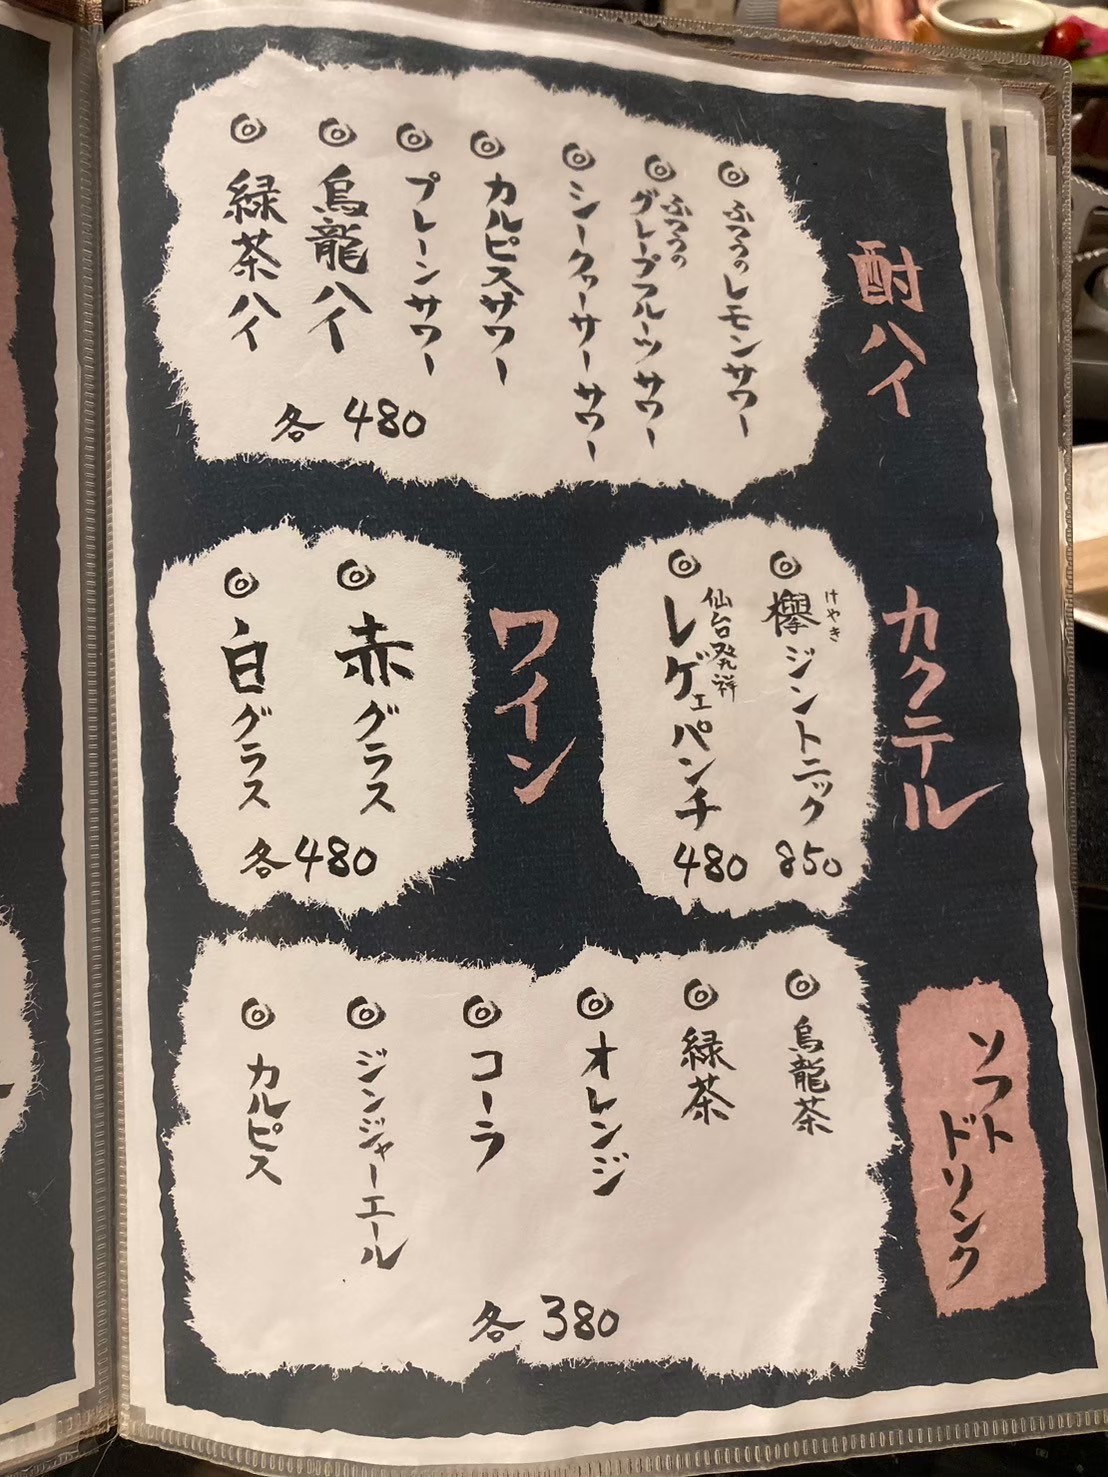 酎ハイ
ふつうのレモンサワー
ふつうの
グレープフルーツサワー
シークヮーサーサワー
カルピスサワー
プレーンサワー
烏龍ハイ
緑茶ハイ
各480
カクテル
けやき
欅ジントニック
850
仙台発祥
レゲェパンチ
480
ワイン
赤グラス
白グラス
各480
ソフト
ドリンク
烏龍茶
緑茶
オレンジ
コーラ
ジンジャーエール
カルピス
各380